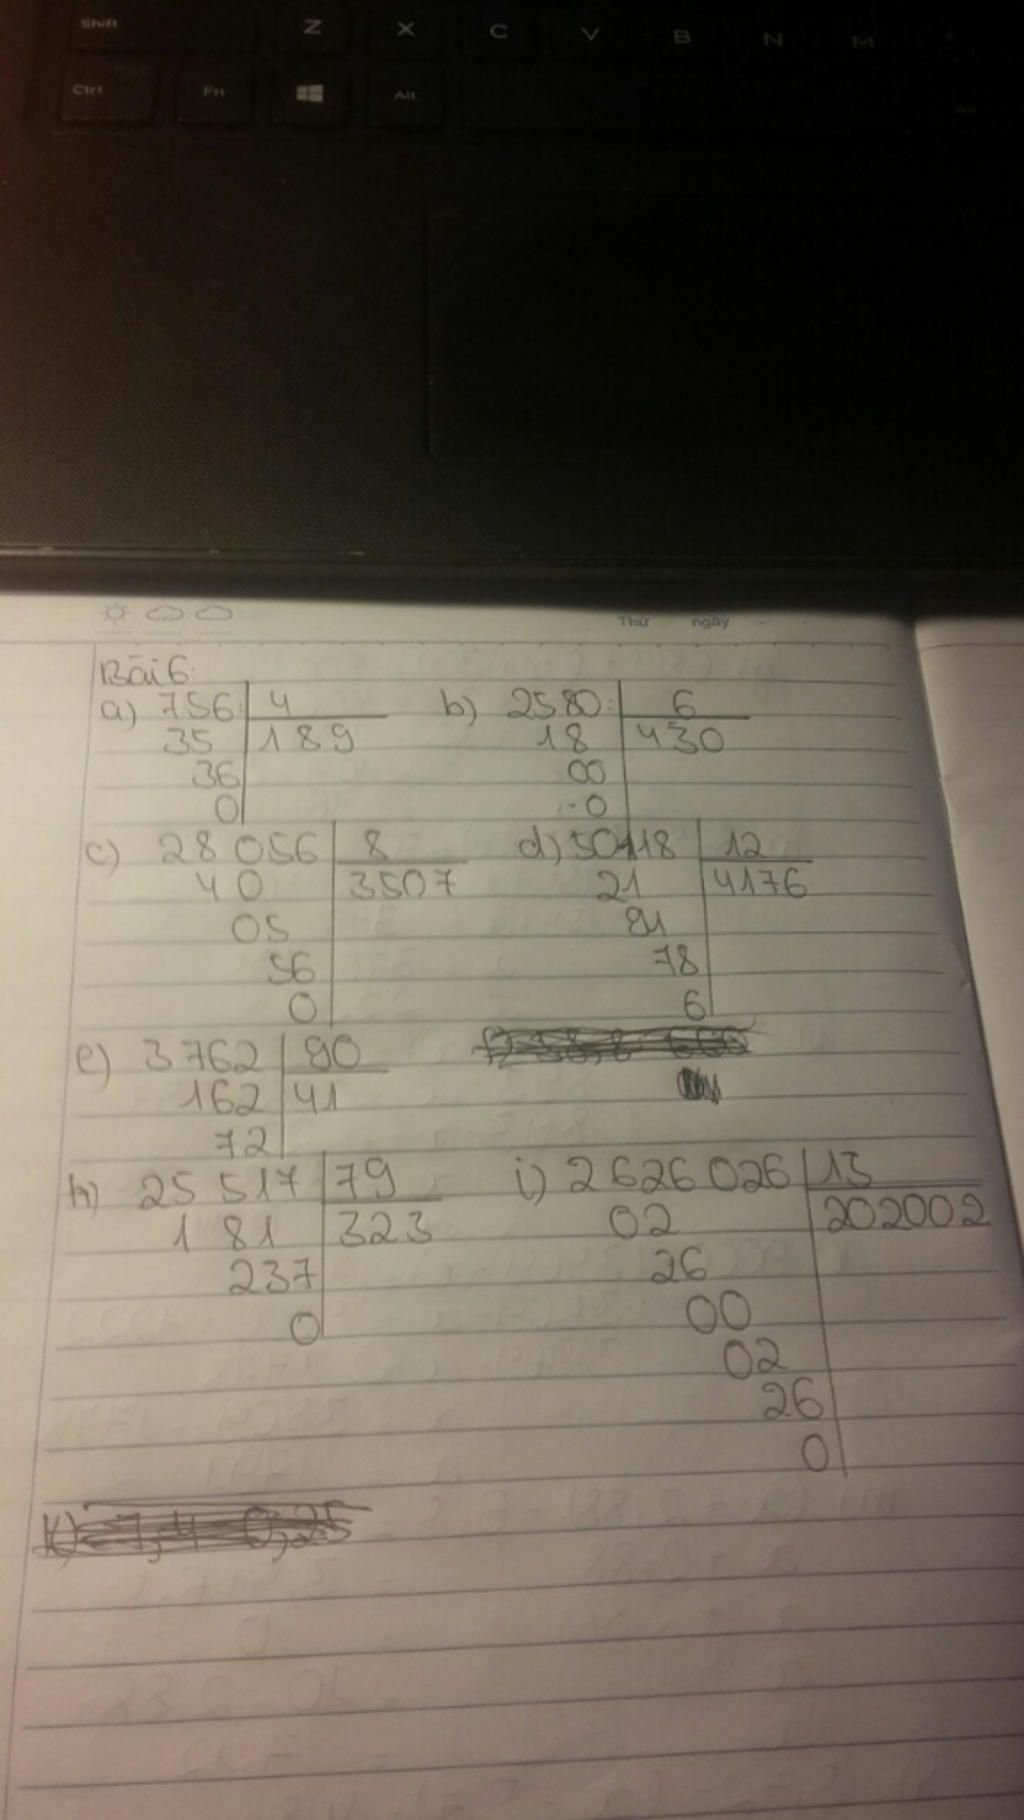 Shift Z X C V B N M
Ctrl Fn Alt
Thứ ngày
Bài 6:
a) 756: 4 b) 2580: 6
35 189 18 430
36 00
0 0
c) 28 056 8 d) 50118 12
40 3507 21 4176
05 91
56 78
0 6
e) 3762 90
162 41
72
h) 25 517 79 i) 2 626 026 13
1 81 323 02 202002
237 26
0 00
02
26
0